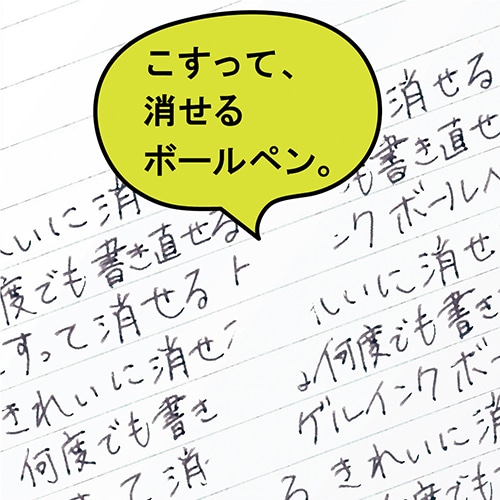 こすって、
消せる
ボールペン。
消せる
も書き直せ
ンクボールペ
れいに消
度でも書き直せる
すって消せるト
きれいに消せ
何度でも書き
って消
いに消せ
何度でも書き
ゲルインクボー
る きれいに消
何度でも